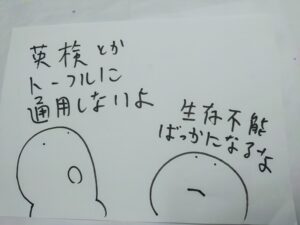 英検とか
トーフルに
通用しないよ
生存不能
ばっかになるよ